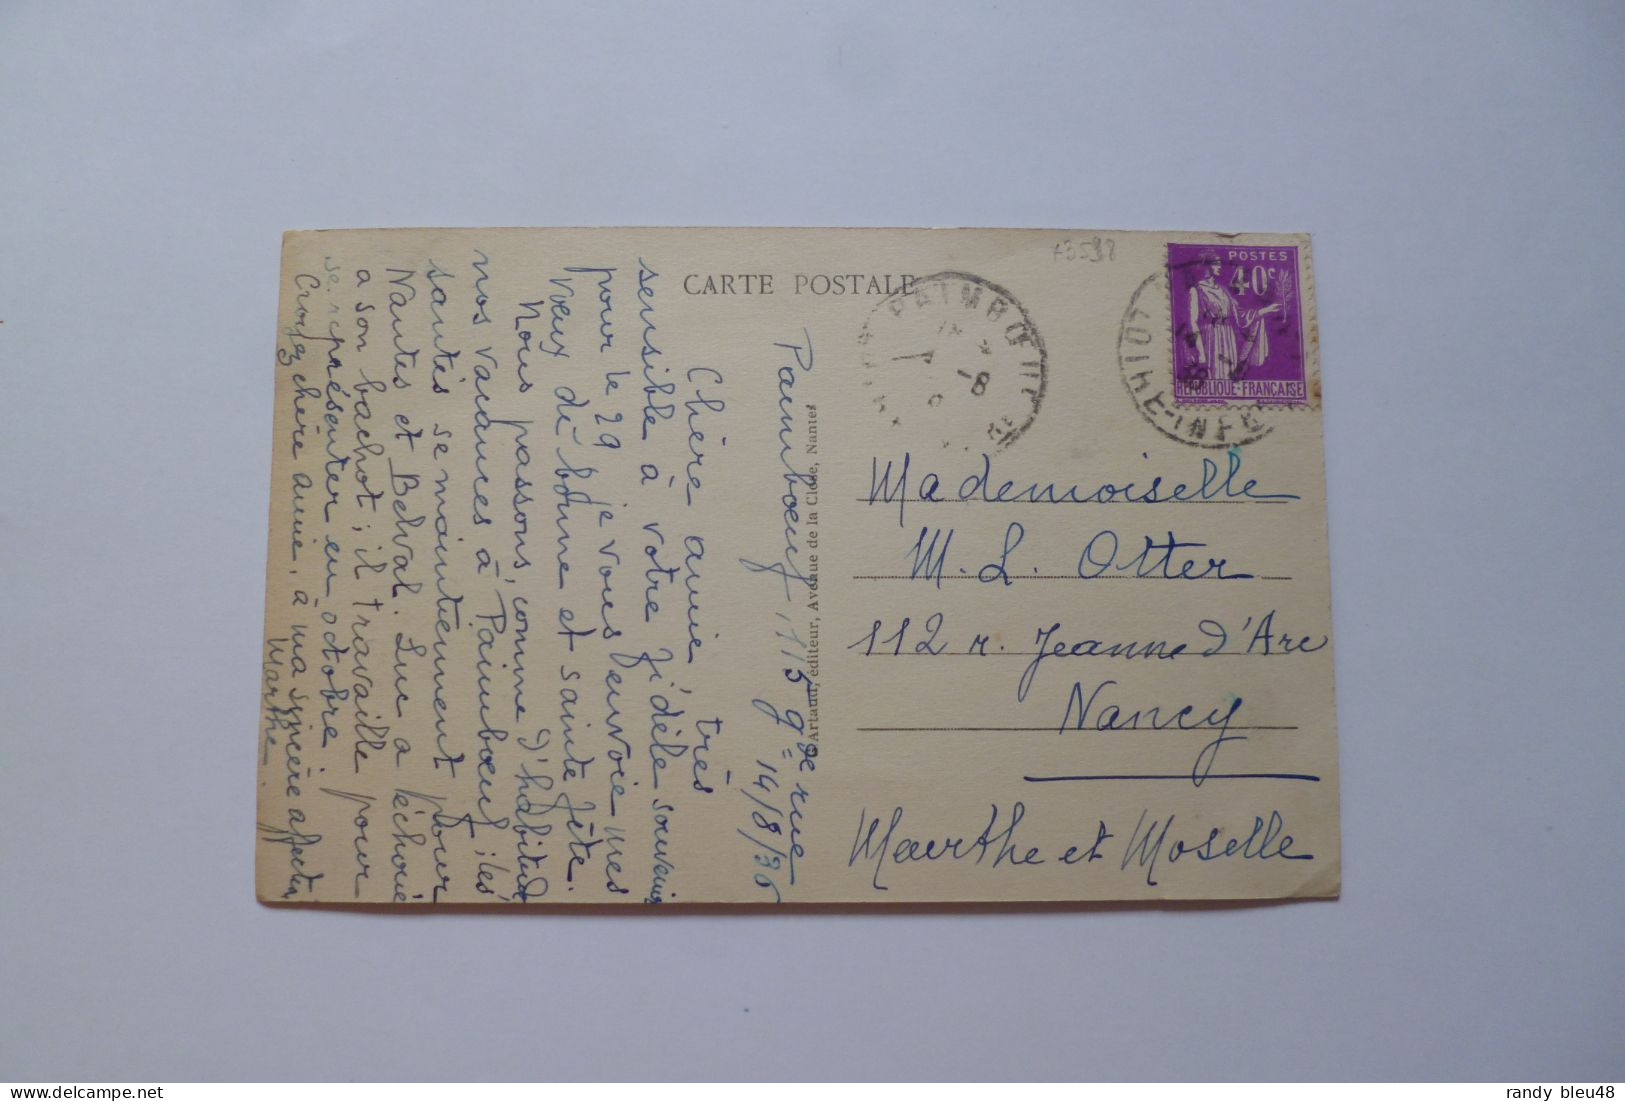 CARTE POSTALE
Paimbœuf, 115 gde rue
14/8/36
Chère amie, très
sensible à votre fidèle souvenir
pour le 29 je vous envoie mes
vœux de bonne et sainte fête.
Nous passons, comme d'habitude
nos vacances à Paimbœuf, les
santés se maintiennent pour
Nantes et Belval. Luc a échoué
a son bachot ; il travaille pour
se représenter en octobre
Croyez chère amie, à ma sincère affection
Marthe.
Artaud, éditeur, Avenue de la Close, Nantes
PAIMBŒUF
POSTES
40c
REPUBLIQUE-FRANÇAISE
LOIRE-INFRE
Mademoiselle
M. L. Otter
112 r. Jeanne d'Arc
Nancy
Meurthe et Moselle
randy bleu48